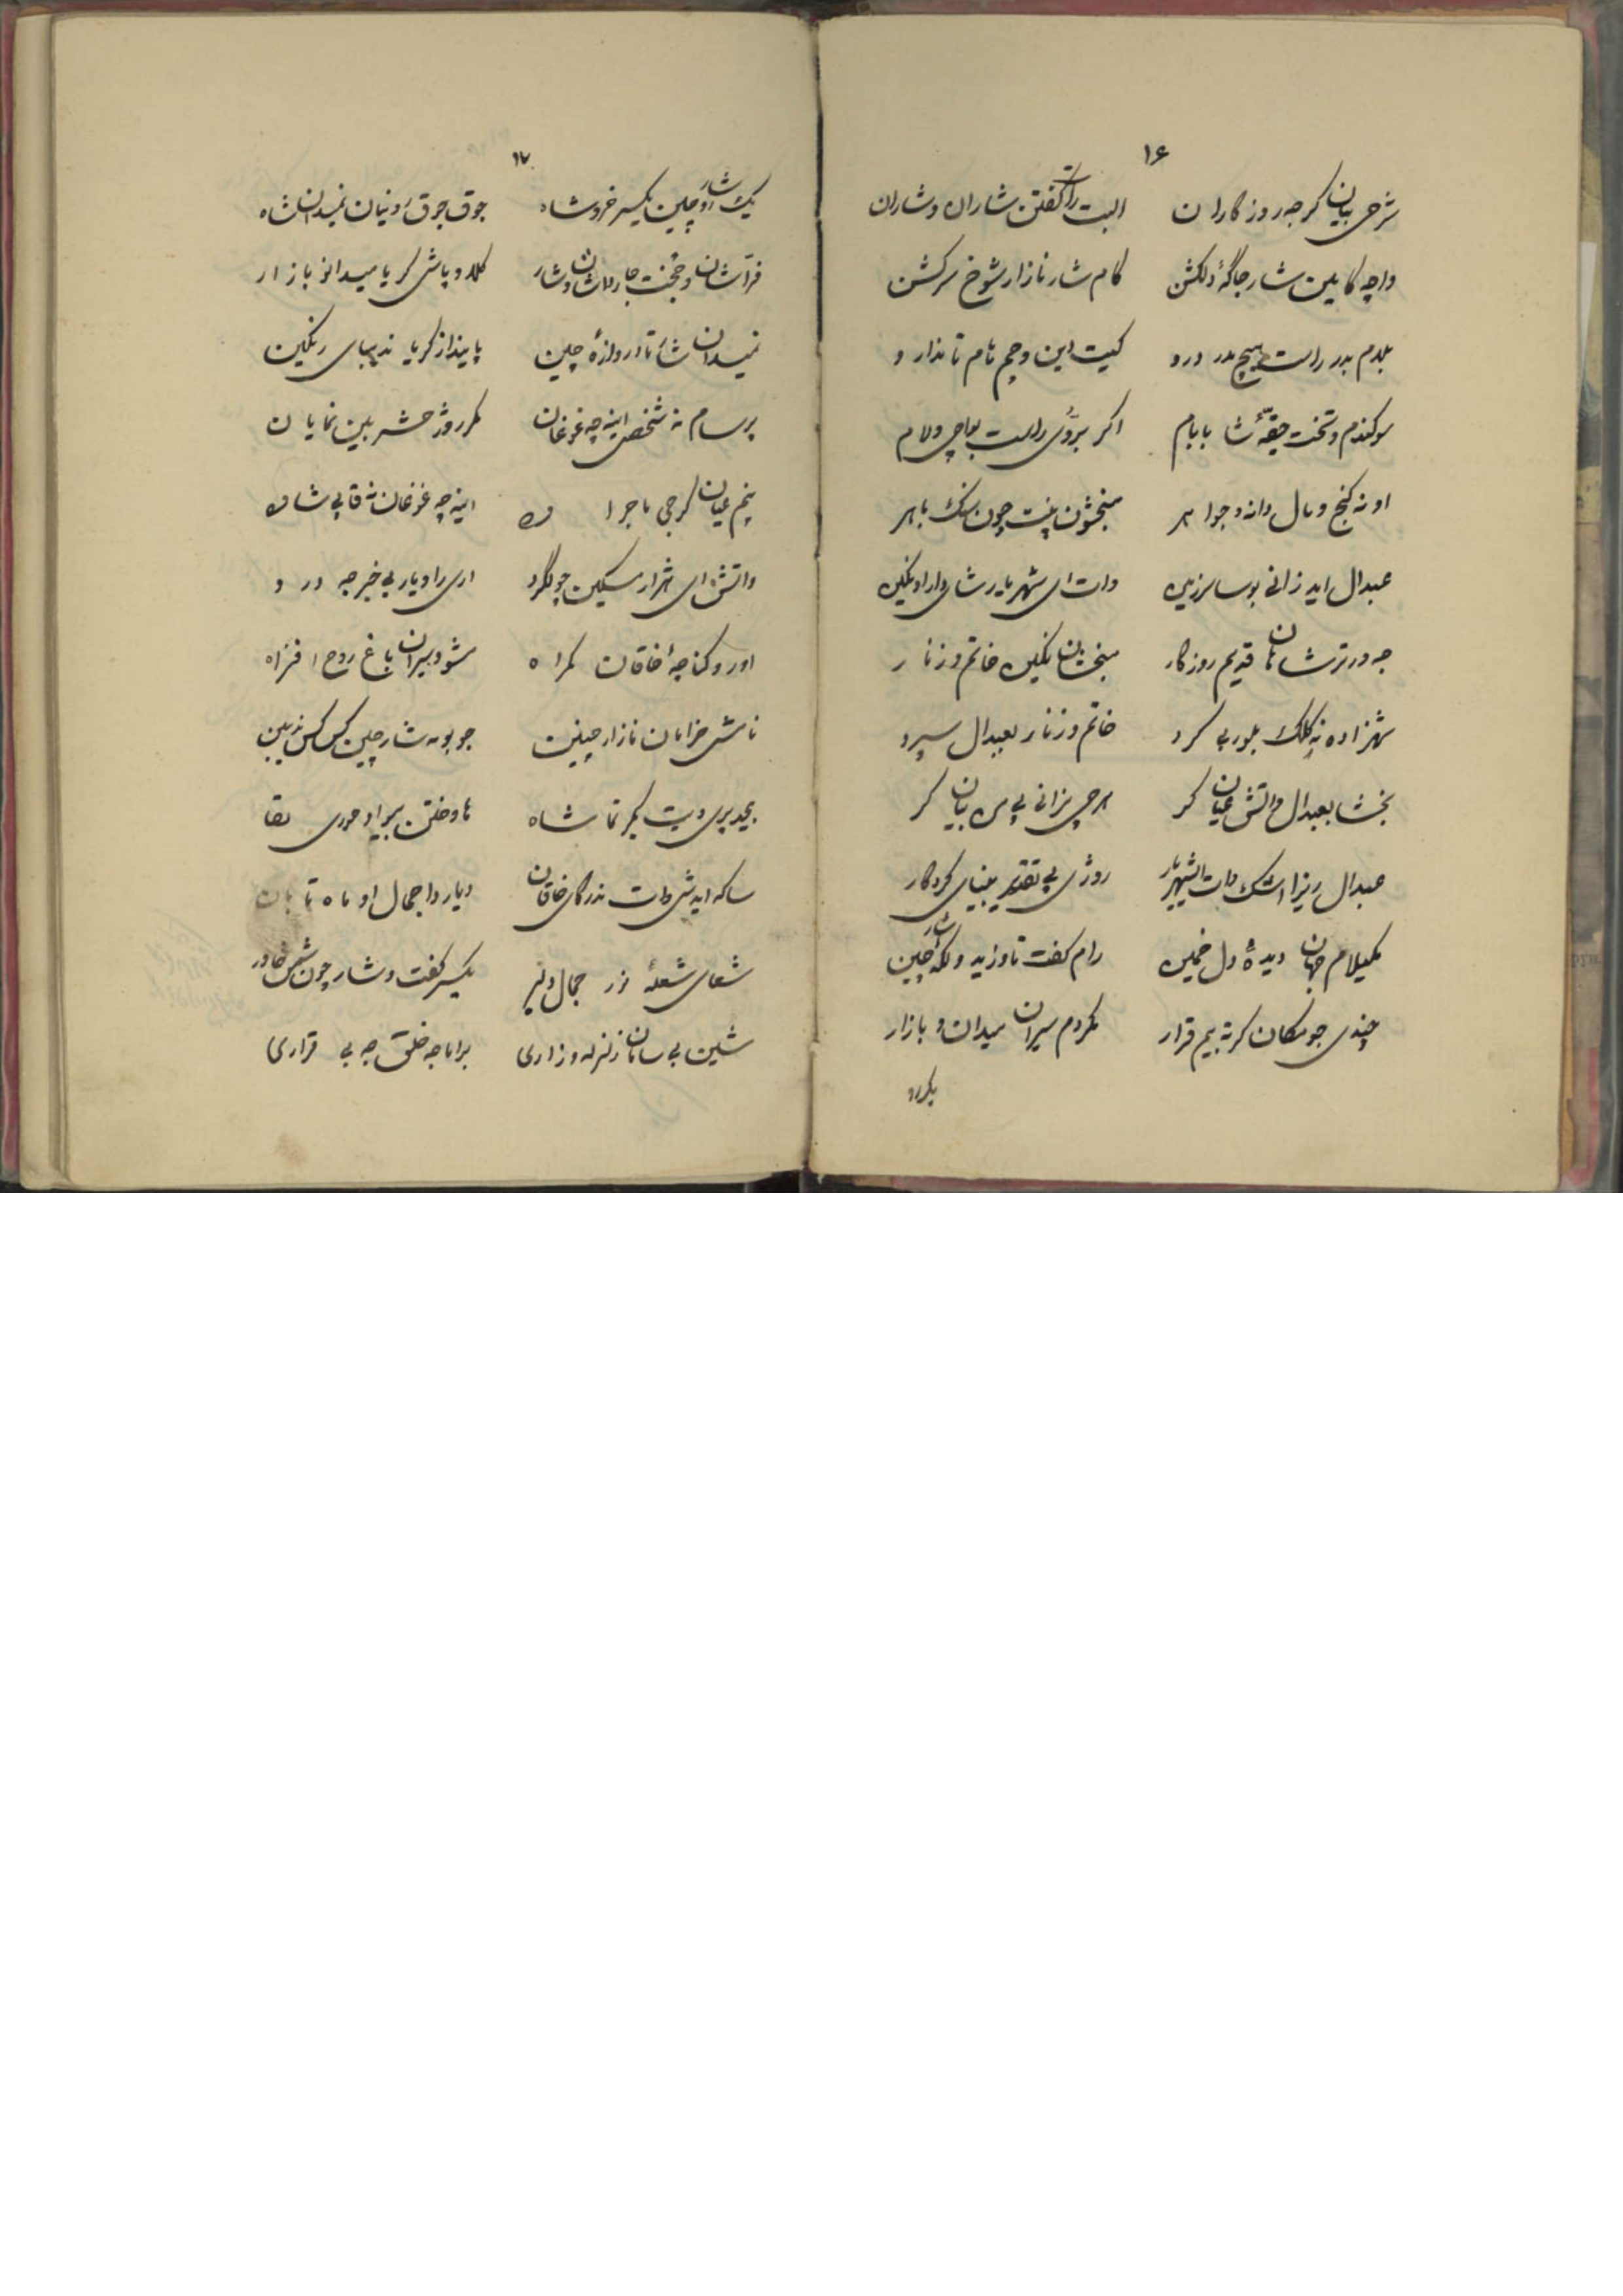 ۱۶
شرحی بیان کر جه روزکاران البت راکفتن شاران و شاران
واچه کا بلین شار جاکهٔ دلکش کام شار نازار شوخ سرکش
بلدم بدر راست هیچ مدر درو کیت این و چم نام نامدار و
سوکندم و تخت جقهٔ شا بابام اکر بزوی راست بواچی ولام
او نه کنج و مال دانه و جواهر مبخشون پنت چون سنک باهر
عبدال اید زانی بوسا زمین وات ای شهریار شای دارا ونکین
جه دورتر شاهان قدیم روزکار مبخشان نکین خاتم و زنار
شهزاده نه کلک بلوری کرد خاتم و زنار بعبدال سپرد
بخشا بعبدال واتش عیان کر هرچی بزانی پی من بیان کر
عبدال ریزا اشک وات ای شهریار روژی پی تقدیر بینای کردکار
مکیلام جهان دیدهٔ دل خمین رام کفت تاوزید و ملکهٔ شار چین
چندی جو مکان کرته بیم قرار مکردم سیران میدان و بازار
یکررو
۱۷
یک رو شار چین یکسر خروشاه جوق جوق رونیان نمیدان شاه
فراشان و جخت جارلاشان و شار کلاو پاشی کریا میدانو بازار
نمیدان شا تا دروازهٔ چین پاینداز کریا نه دیبای رنکین
پرسام نه شخصی اینه چه غوغان مکر روژ حشر بلین نمایان
پنم عیان کر جی ماجرا وه اینه چه غوغان نه قاپی شاوه
واتش ای هژار مسکین چولکرد اری راویار بی خبر جه درد
اورو کناچهٔ خاقان مکراه مشو و سیران باغ روح افزاه
نامش خرامان نازار چینن جو بومه شار چین کس کس نه بین
بعید پری ویت بکر تماشاه تا وختن بیراو حوری لقا
ساکه ایدشی وات نه درکای خاقان دیار دا جمال او ماه تابان
شعای شعلهٔ نور جمال دلبر یکسر کفت و شار چون شمس خاور
شین بی سامان زلزله و زاری براما جه خلق جه بی قراری